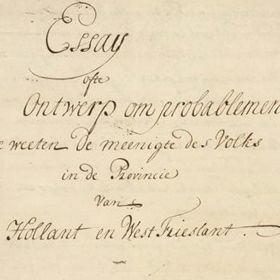 Essay
ofte
Ontwerp om probablemen
weeten De meenigte des Volks
in de Provincie
Van
Hollant en West Frieslant.